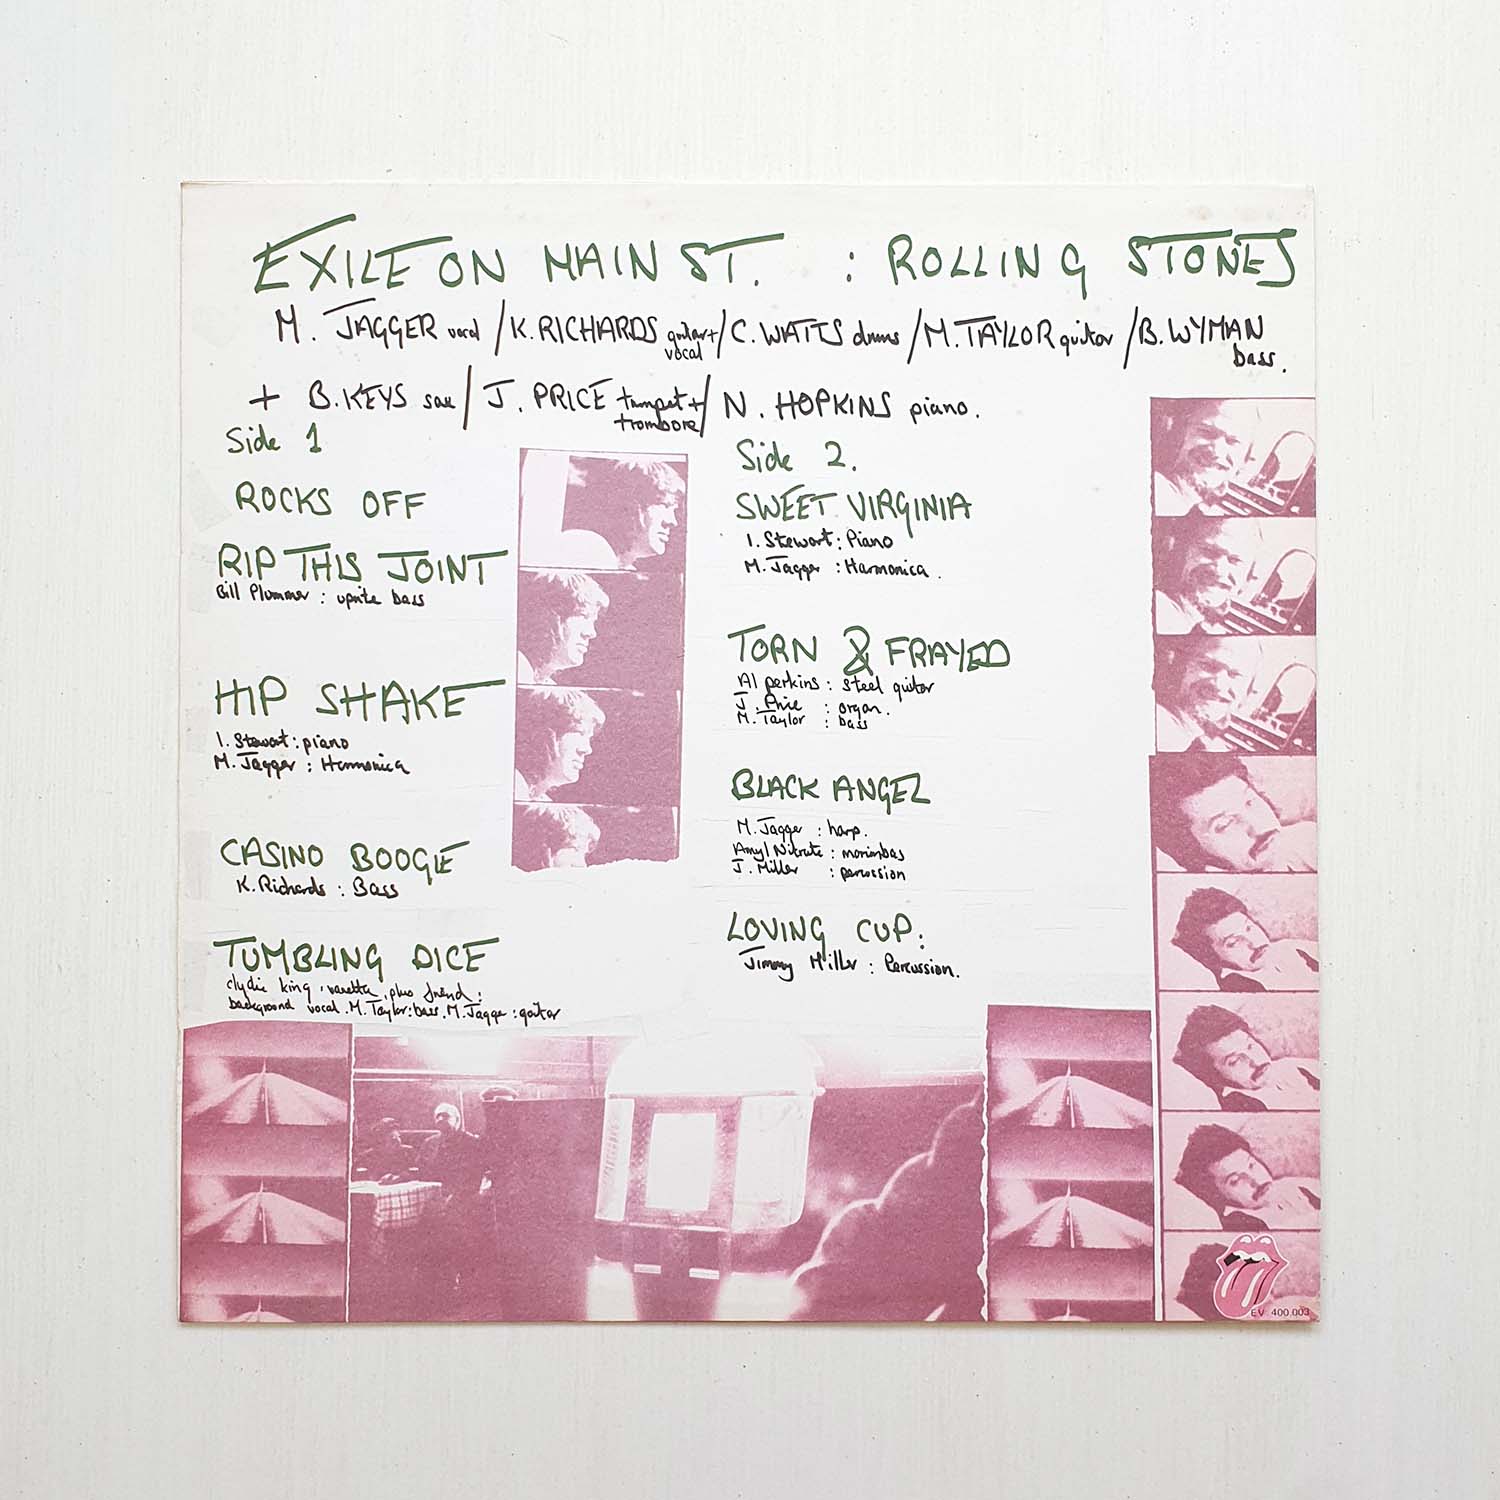 EXILE ON MAIN ST. : ROLLING STONES
M. JAGGER vocal / K. RICHARDS guitar + vocal / C. WATTS drums / M. TAYLOR guitar / B. WYMAN bass.
+ B. KEYS sax / J. PRICE trumpet + trombone / N. HOPKINS piano.
Side 1
ROCKS OFF
RIP THIS JOINT
Bill Plummer : uprite bass
HIP SHAKE
I. Stewart : piano
M. Jagger : Harmonica
CASINO BOOGIE
K. Richards : Bass
TUMBLING DICE
clydie king, vanetta, plus friend :
background vocal. M. Taylor : bass. M. Jagger : guitar
Side 2.
SWEET VIRGINIA
I. Stewart : Piano
M. Jagger : Harmonica.
TORN & FRAYED
Al perkins : steel guitar
J. Price : organ.
M. Taylor : bass
BLACK ANGEL
M. Jagger : harp.
Amyl Nitrate : marimbas
J. Miller : percussion
LOVING CUP :
Jimmy Miller : Percussion.
EV 400.003